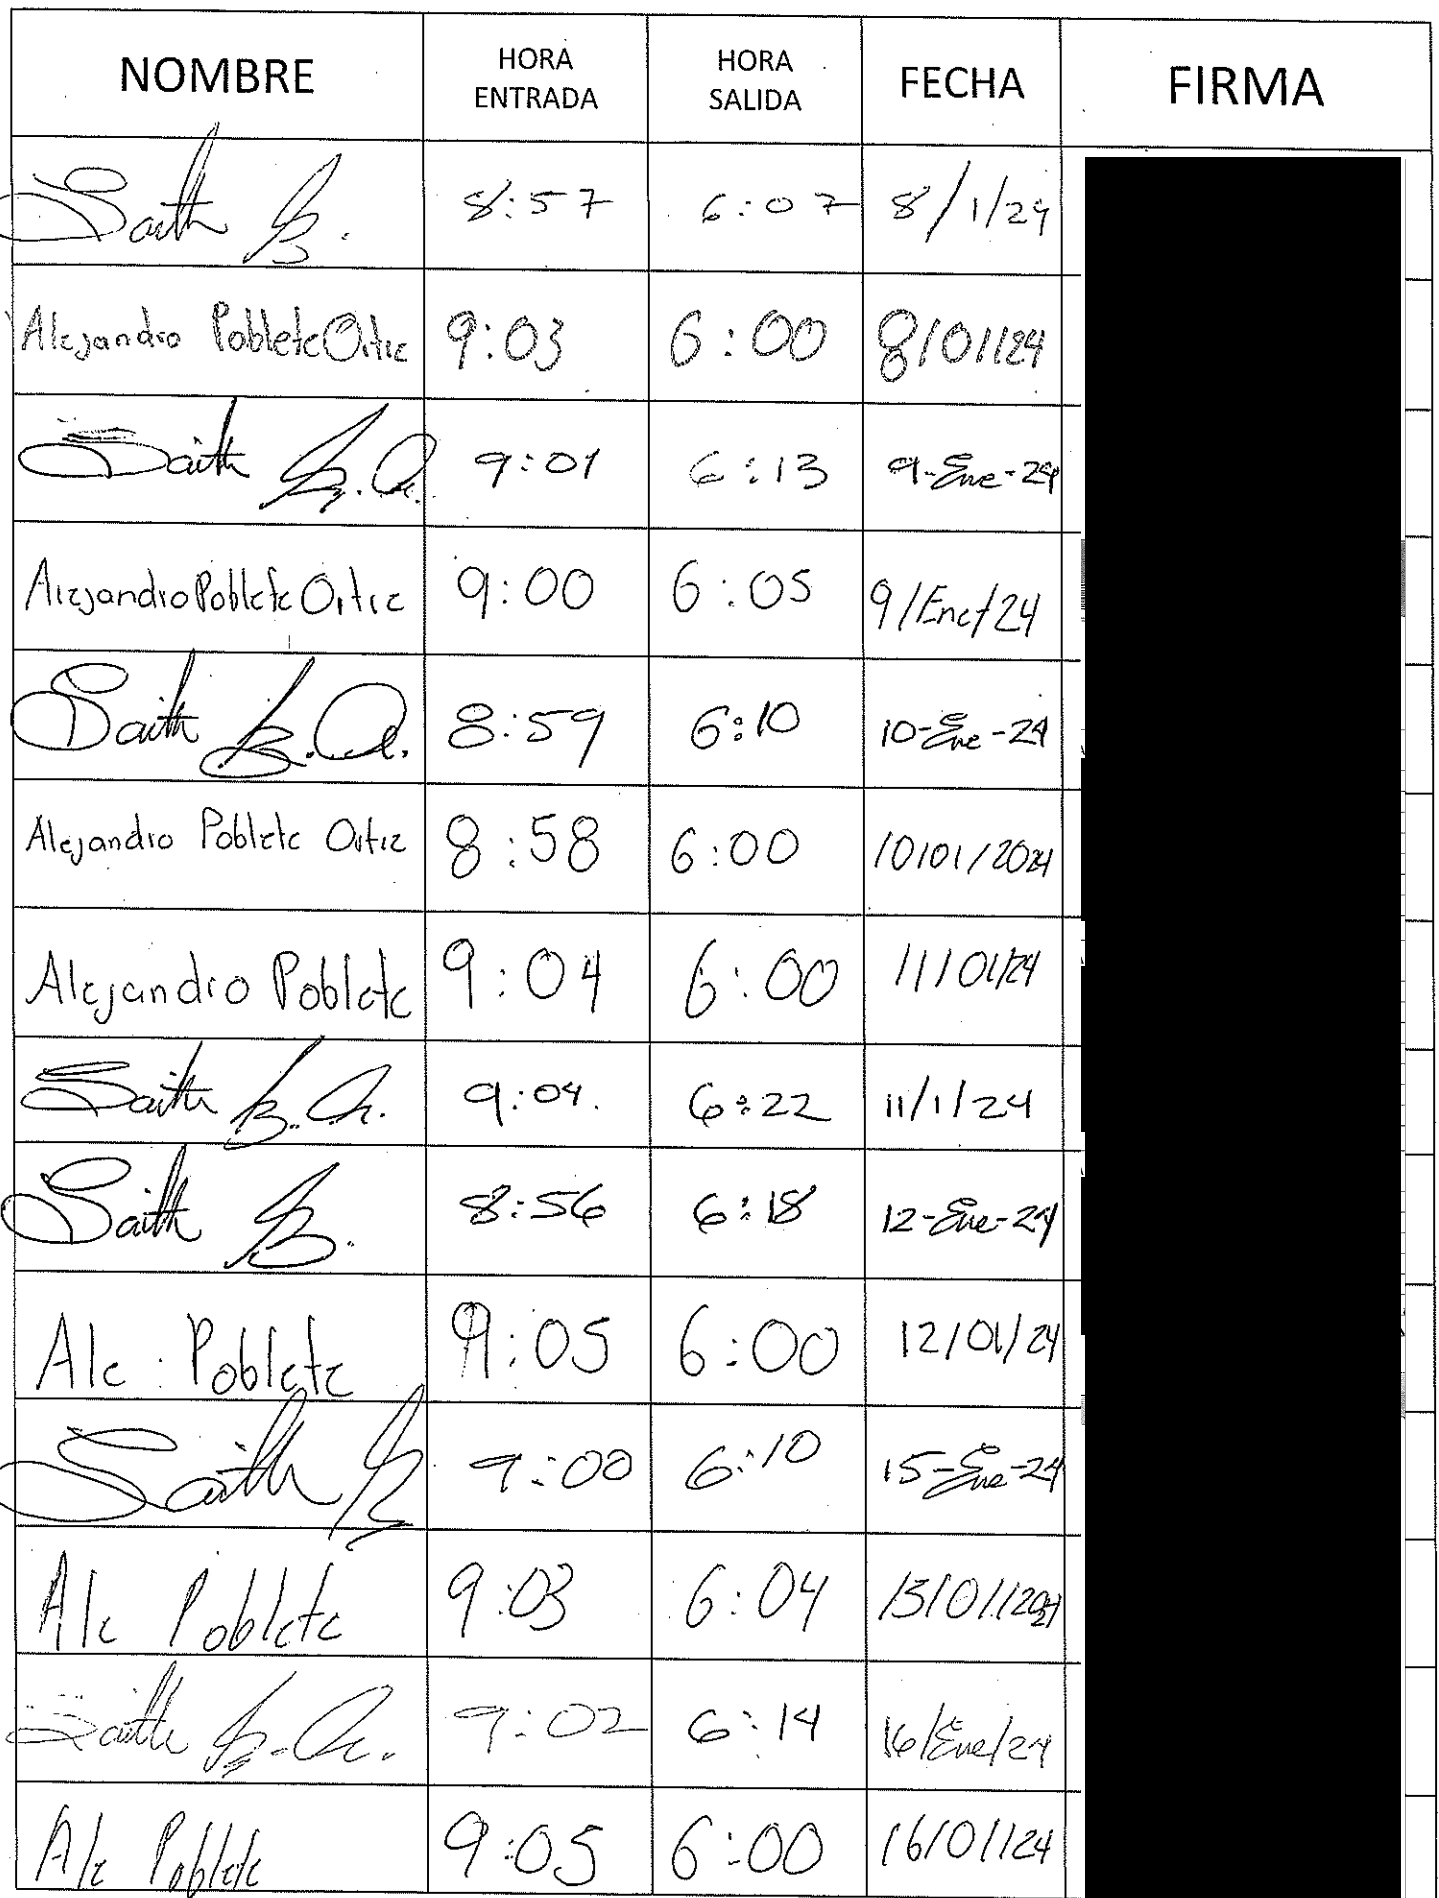 NOMBRE HORA ENTRADA HORA SALIDA FECHA FIRMA
Saith B. 8:57 6:07 8/1/24
Alejandro Poblete Ortiz 9:03 6:00 8/01/24
Saith B. A. 9:01 6:13 9-Ene-24
Alejandro Poblete Ortiz 9:00 6:05 9/Ene/24
Saith B. A. 8:59 6:10 10-Ene-24
Alejandro Poblete Ortiz 8:58 6:00 10/01/2024
Alejandro Poblete 9:04 6:00 11/01/24
Saith B. A. 9:04. 6:22 11/1/24
Saith B. 8:56 6:18 12-Ene-24
Ale Poblete 9:05 6:00 12/01/24
Saith B 9:00 6:10 15-Ene-24
Ale Poblete 9:03 6:04 15/01/2024
Saith B. A. 9:02 6:14 16/Ene/24
Ale Poblete 9:05 6:00 16/01/24